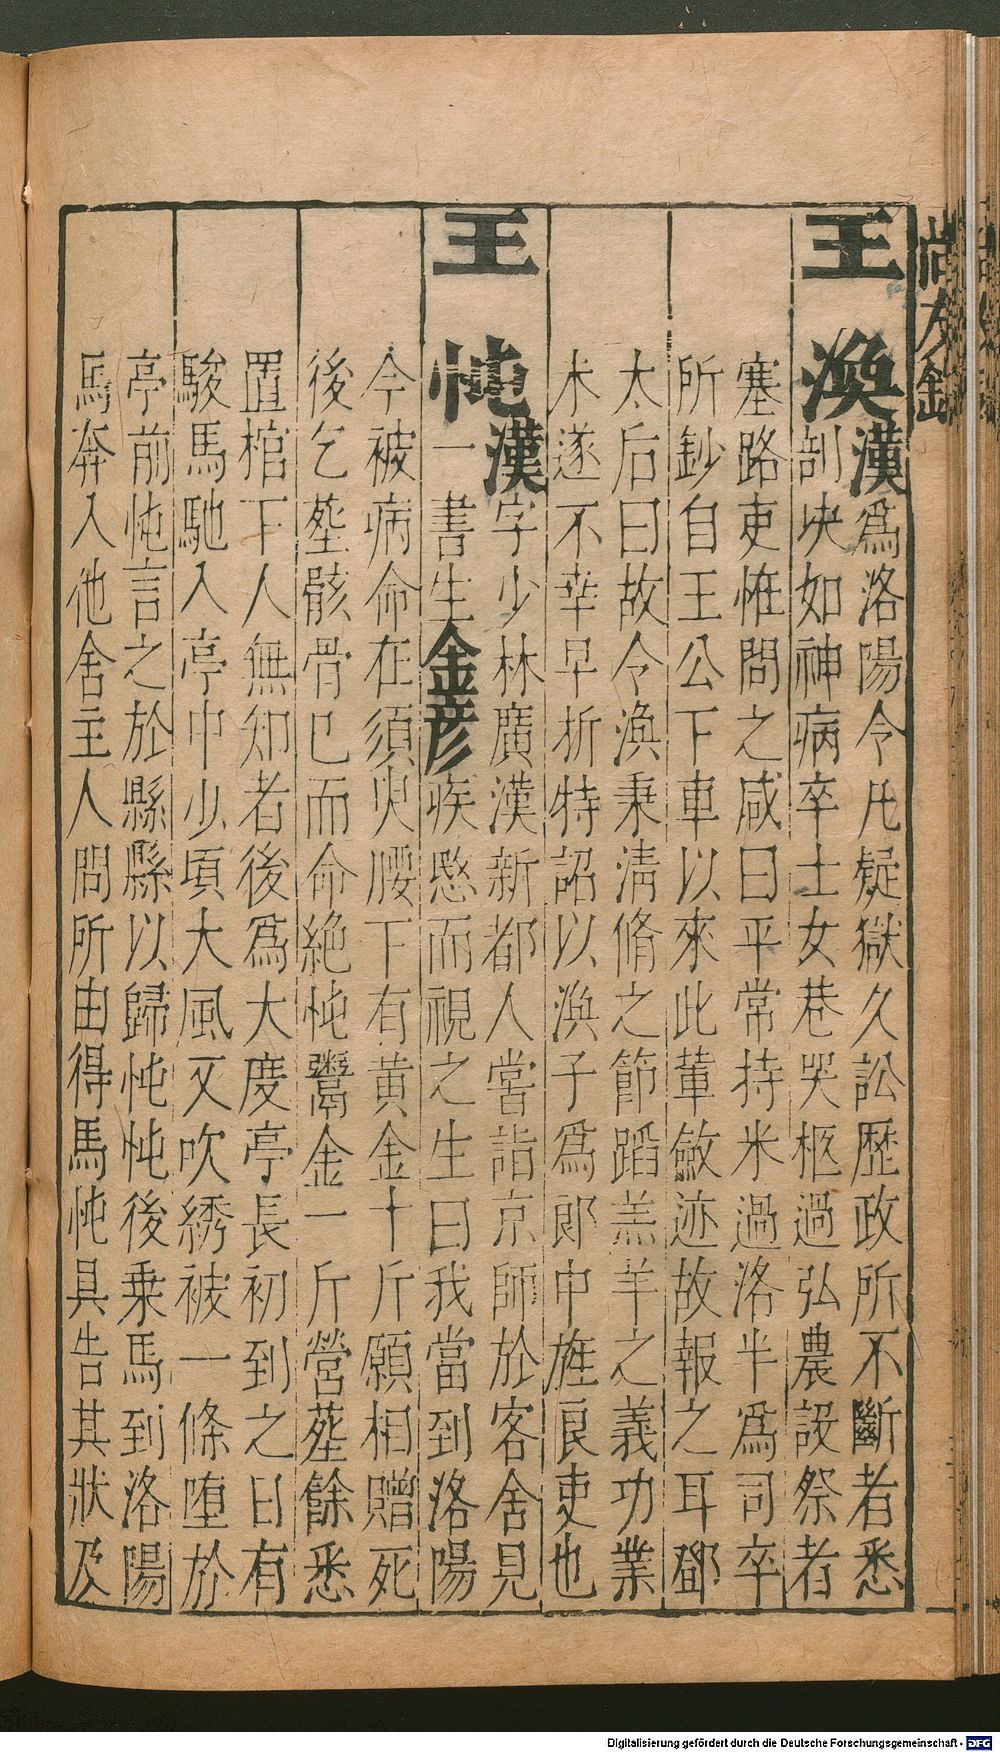 尚友錄
王渙漢爲洛陽令凡疑獄久訟歷政所不斷者悉
剖決如神病卒士女巷哭柩過弘農設祭者
塞路吏惟問之咸曰平常持米過洛半爲司卒
所鈔自王公下車以來此輩斂迹故報之耳鄧
太后曰故令渙秉淸脩之節蹈羔羊之義功業
未遂不幸早折特詔以渙子爲郎中旌良吏也
王忳漢字少林廣漢新都人嘗詣京師於客舍見
一書生金彦疾愍而視之生曰我當到洛陽
今被病命在須臾腰下有黄金十斤願相贈死
後乞葬骸骨已而命絶忳鬻金一斤營葬餘悉
置棺下人無知者後爲大度亭長初到之日有
駿馬馳入亭中少頃大風又吹綉被一條堕於
亭前忳言之於縣縣以歸忳忳後乗馬到洛陽
馬奔入他舍主人問所由得馬忳具告其狀及
Digitalisierung gefördert durch die Deutsche Forschungsgemeinschaft - DFG